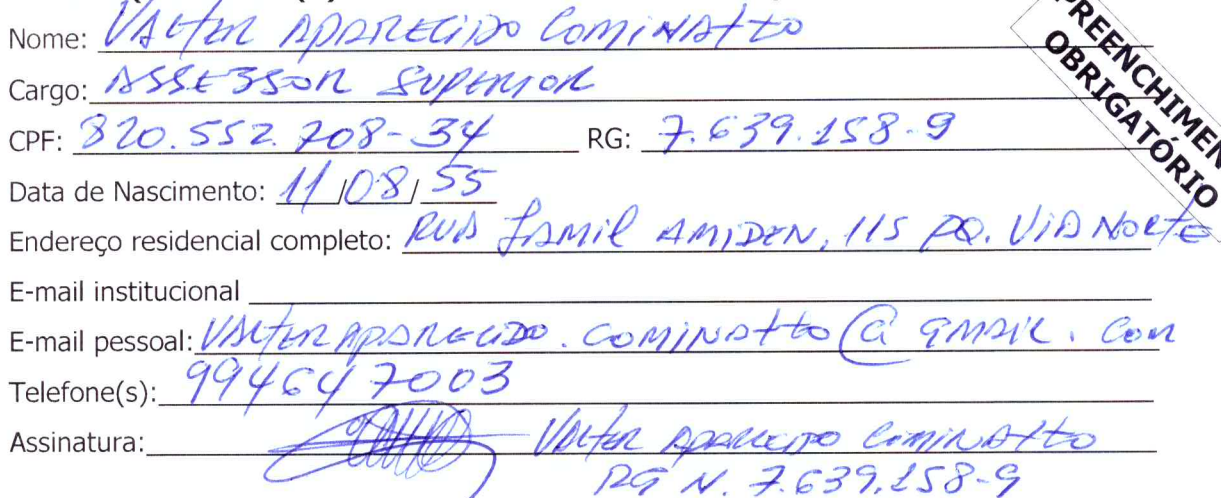 Nome: VALTER APARECIDO COMINATTO
Cargo: ASSESSOR SUPERIOR
CPF: 820.552.708-34 RG: 7.639.158-9
Data de Nascimento: 11/08/55
Endereço residencial completo: RUA JAMIL AMIDEN, 115 PQ. VIA NORTE
E-mail institucional
E-mail pessoal: VALTERAPARECIDO.COMINATTO@GMAIL.COM
Telefone(s): 994647003
Assinatura: VALTER APARECIDO COMINATTO
RG N. 7.639.158-9
PREENCHIMEN
OBRIGATÓRIO